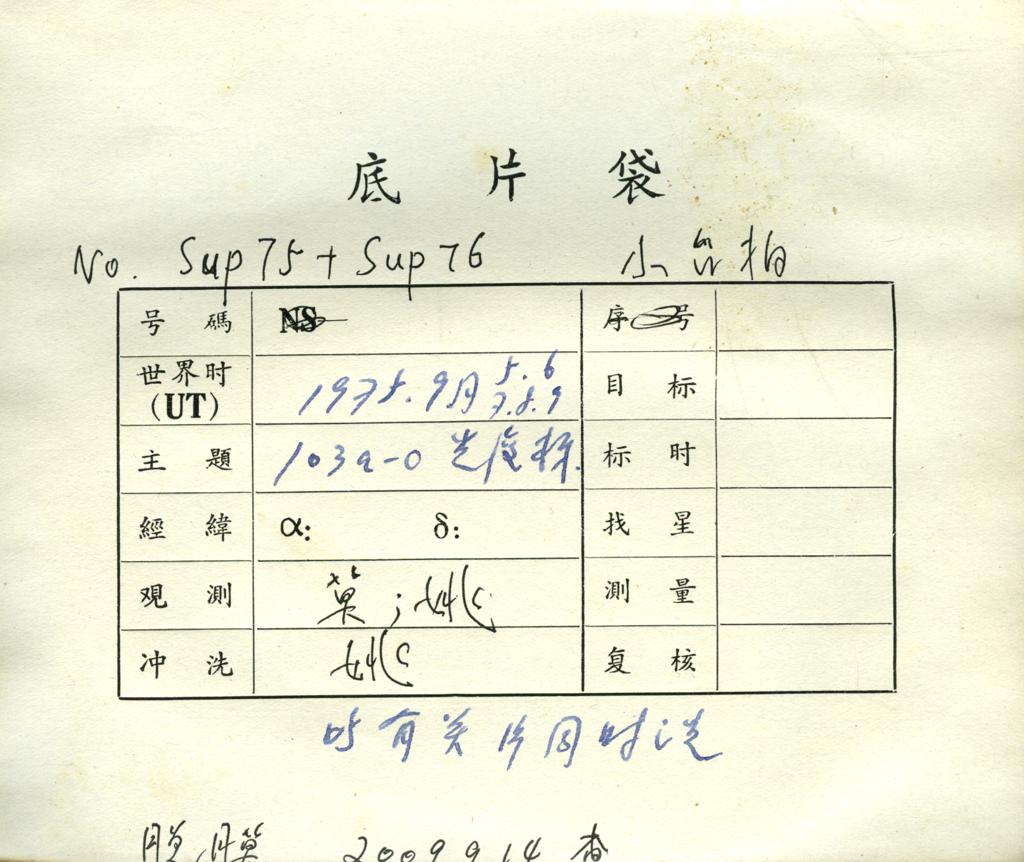 底 片 袋
No. Sup 75 + Sup 76 小台拍
号 碼 NS 序 号
世界时 (UT) 1975. 9月 5.6 7.8.9 目 标
主 題 103a-0 光度标 标 时
經 緯 α: δ: 找 星
观 測 莫; 姚 測 量
冲 洗 姚 复 核
与有关片同时洗
脱膜 2009 9 14 查